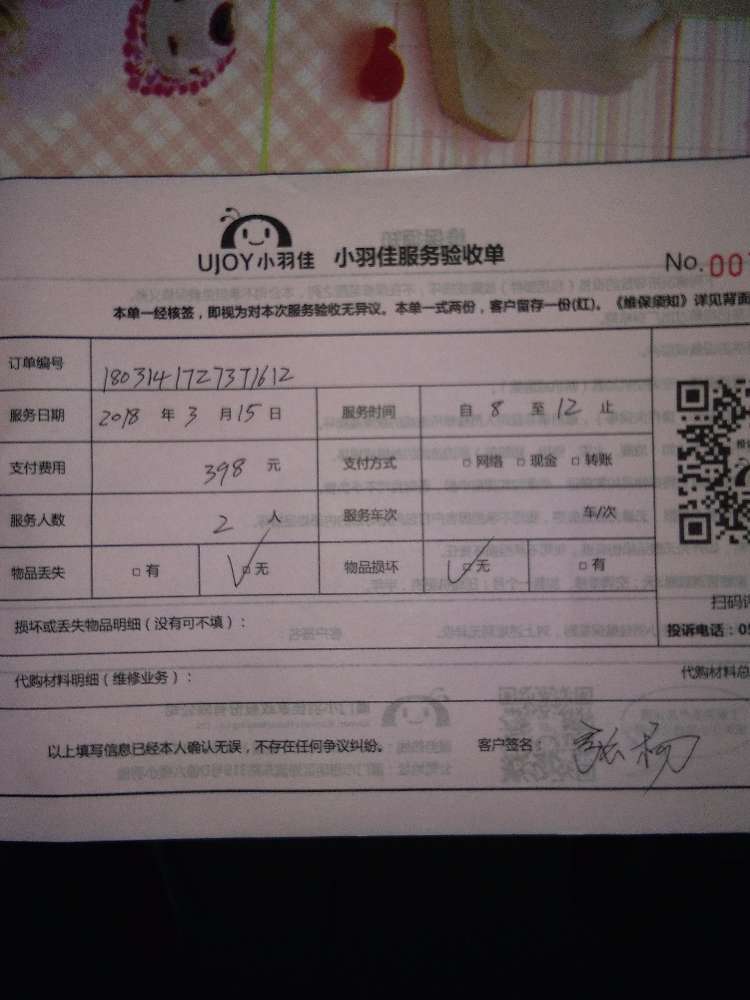 UJOY小羽佳 小羽佳服务验收单
No.00
本单一经核签，即视为对本次服务验收无异议。本单一式两份，客户留存一份(红)。《维保须知》详见背面
订单编号 1803141727371612
服务日期 2018 年 3 月 15 日 服务时间 自 8 至 12 止
支付费用 398 元 支付方式 □ 网络 □ 现金 □ 转账
服务人数 2 人 服务年次 年/次
物品丢失 □ 有 □ 无 物品损坏 □ 无 □ 有
扫码
损坏或丢失物品明细（没有可不填）：
投诉电话：05
代购材料明细（维修业务）：
代购材料总
以上填写信息已经本人确认无误，不存在任何争议纠纷。 客户签名：